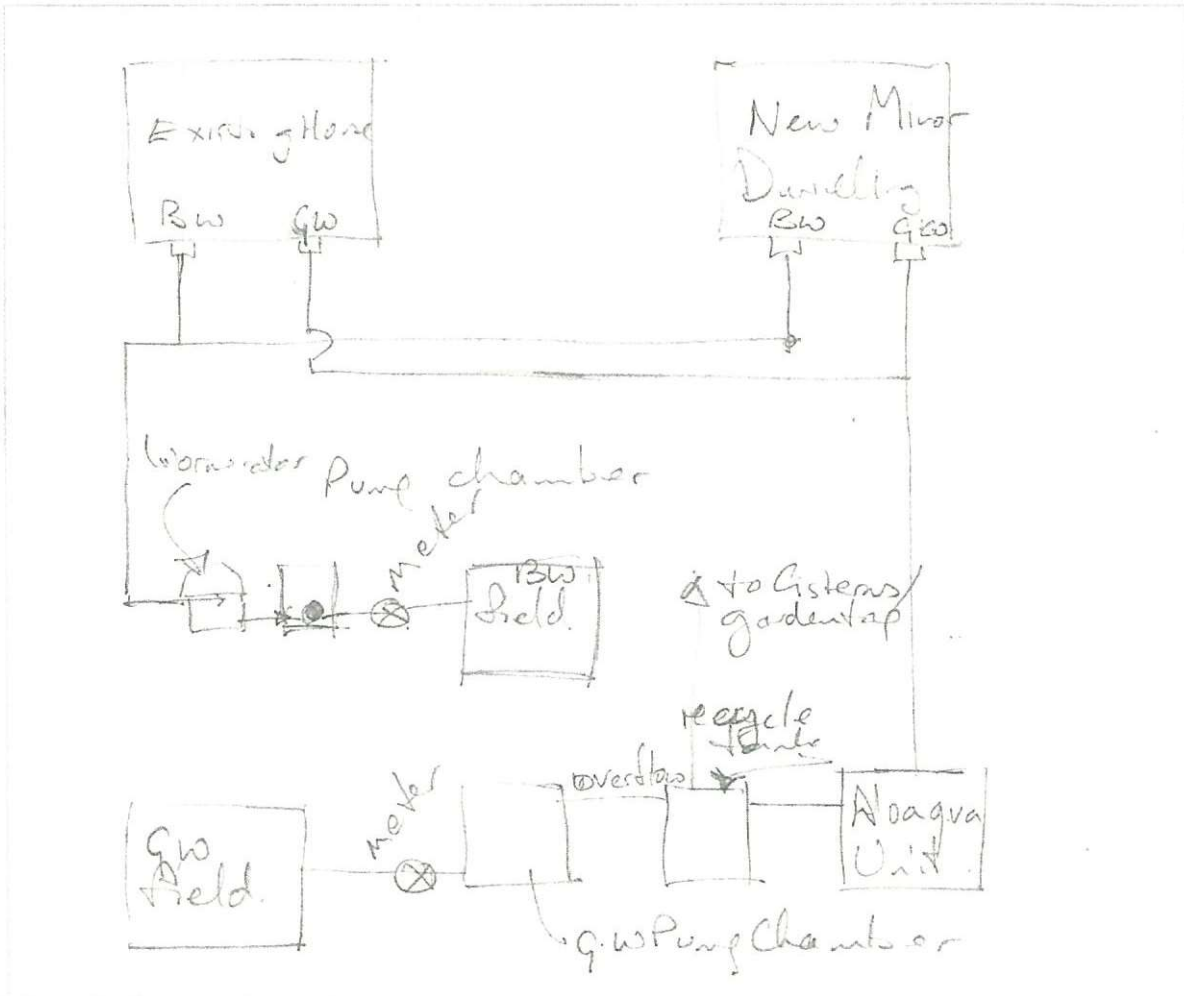 Existing Home
BW GW
New Minor
Dwelling
BW GW
Pump chamber
Meter
BW
field.
to Cisterns/
garden tap
recycle
tank
overflow
Meter
GW
field.
Unit
G.W Pump Chamber